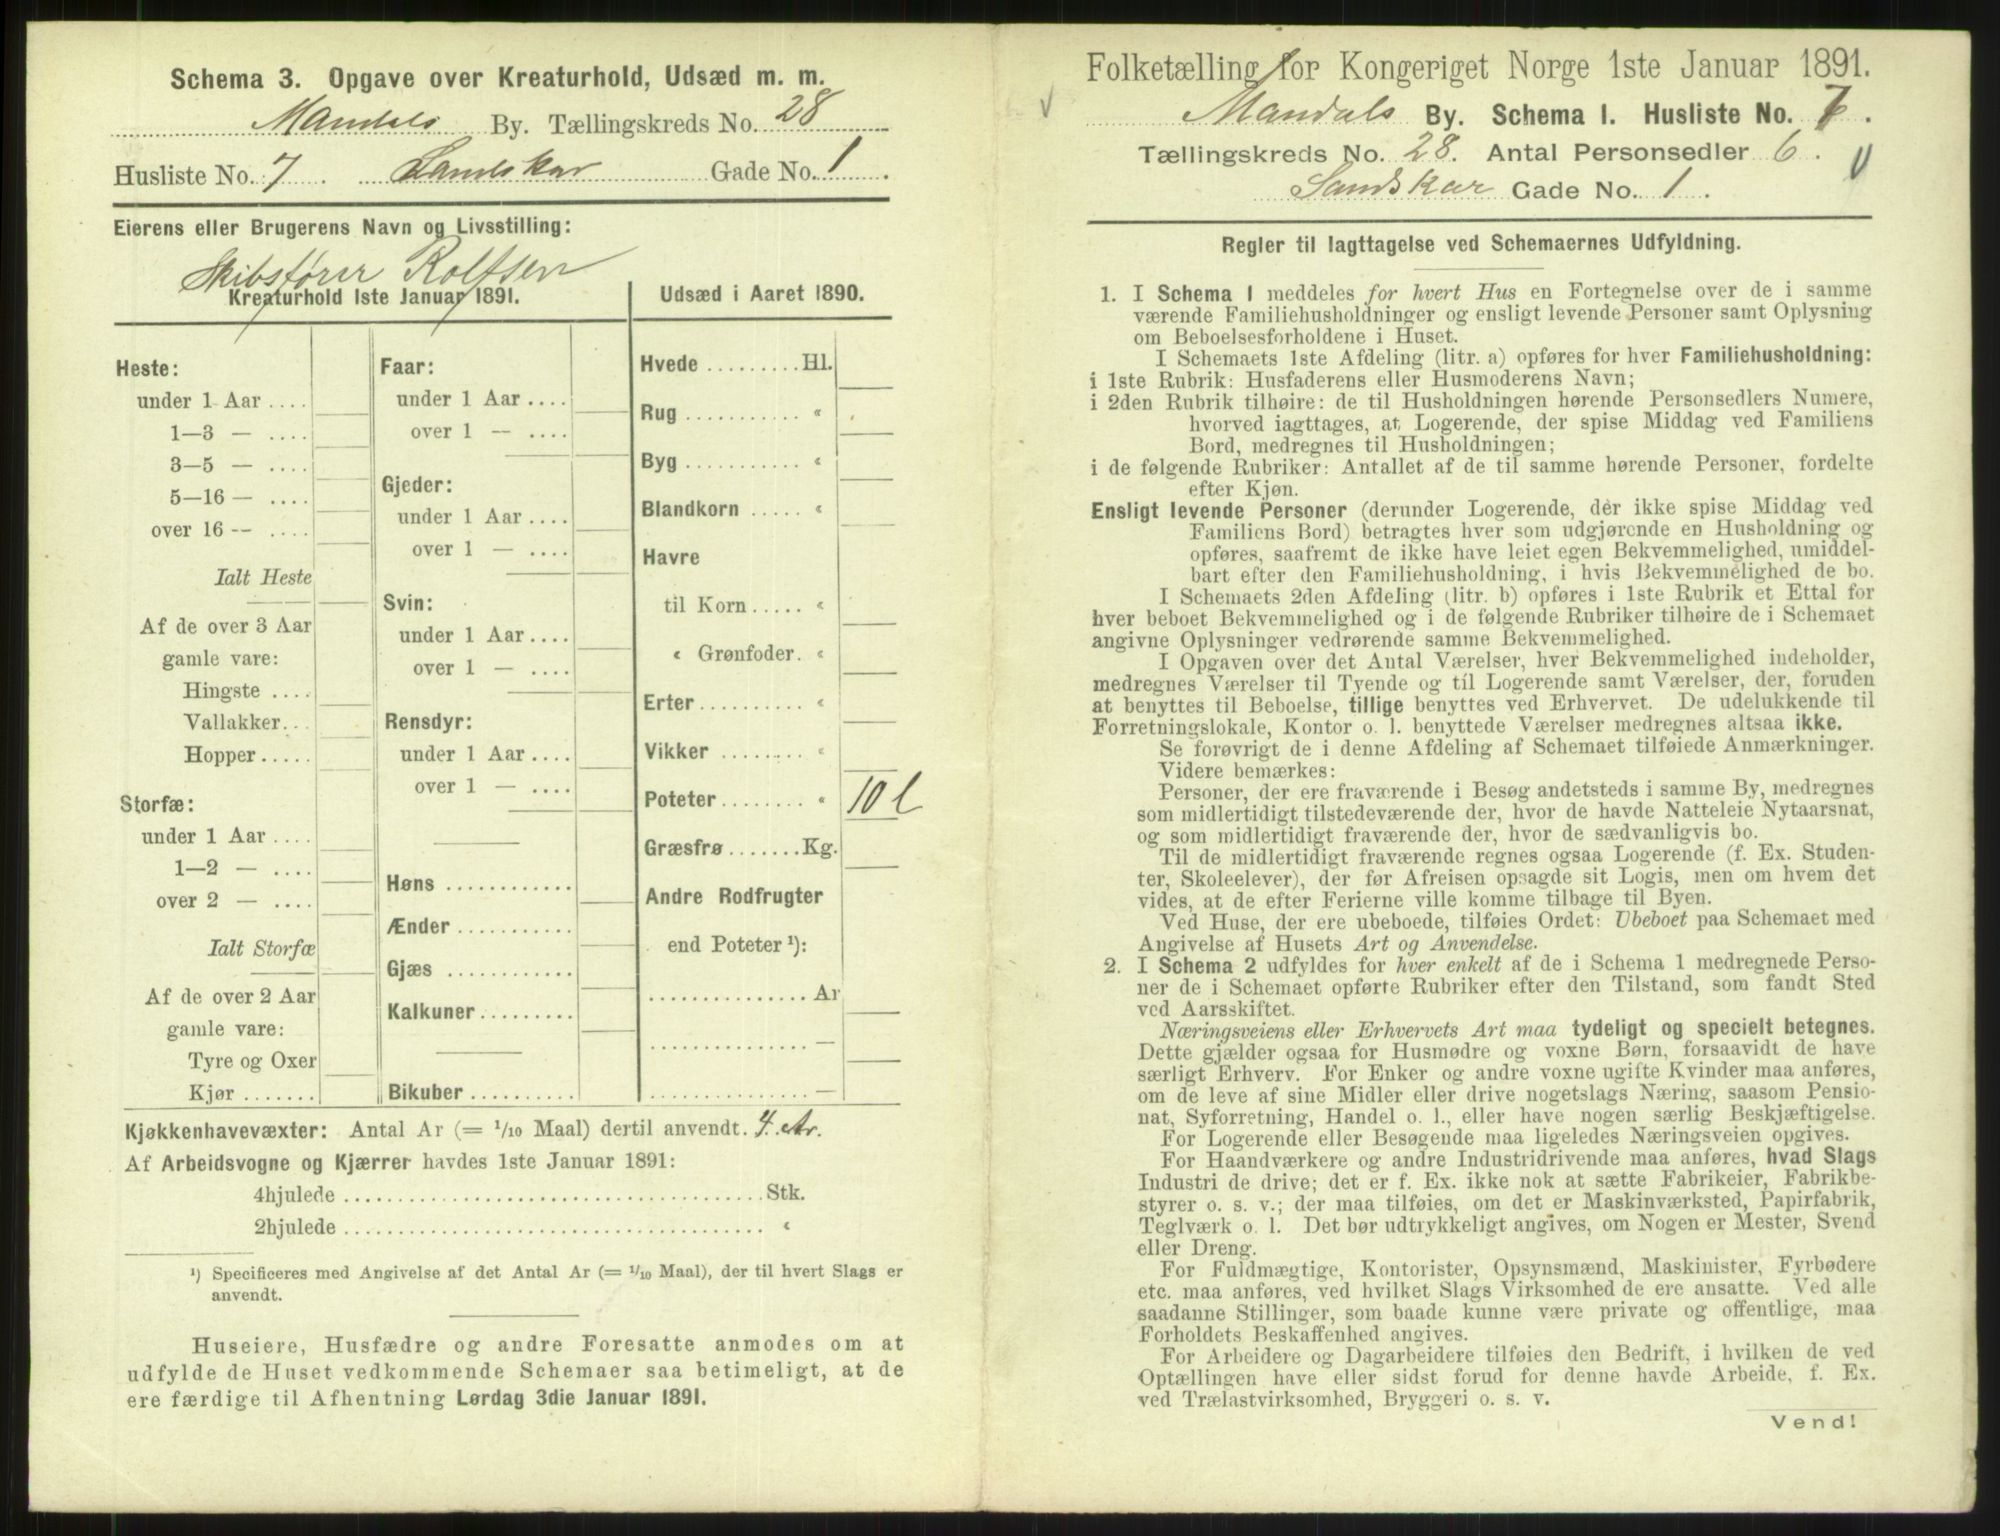 Schema 3. Opgave over Kreaturhold, Udsæd m. m.
Mandals By. Tællingskreds No. 28
Husliste No. 7. Sandskar Gade No. 1.
Eierens eller Brugerens Navn og Livsstilling:
Skibsfører Rolfsen
Kreaturhold 1ste Januar 1891.
Heste:
under 1 Aar ....
1—3 — ....
3—5 — ....
5—16 — ....
over 16 -- ....
Ialt Heste
Af de over 3 Aar
gamle vare:
Hingste ....
Vallakker...
Hopper.....
Storfæ:
under 1 Aar ....
1—2 — ....
over 2 — ....
Ialt Storfæ
Af de over 2 Aar
gamle vare:
Tyre og Oxer
Kjør .......
Faar:
under 1 Aar ....
over 1 — ....
Gjeder:
under 1 Aar ....
over 1 — ....
Svin:
under 1 Aar ....
over 1 — ....
Rensdyr:
under 1 Aar ....
over 1 — ....
Høns ............
Ænder ...........
Gjæs ............
Kalkuner .........
Bikuber ..........
Udsæd i Aaret 1890.
Hvede .........Hl.
Rug ........... «
Byg ........... «
Blandkorn ..... «
Havre
til Korn ..... «
« Grønfoder. «
Erter ......... «
Vikker ........ «
Poteter ........ « 10 l
Græsfrø .......Kg.
Andre Rodfrugter
end Poteter ¹):
............... Ar
............... —
............... —
Kjøkkenhavevæxter: Antal Ar (= 1/10 Maal) dertil anvendt. 4. Ar.
Af Arbeidsvogne og Kjærrer havdes 1ste Januar 1891:
4hjulede ........................................ Stk.
2hjulede ........................................ «
¹) Specificeres med Angivelse af det Antal Ar (= 1/10 Maal), der til hvert Slags er
anvendt.
Huseiere, Husfædre og andre Foresatte anmodes om at
udfylde de Huset vedkommende Schemaer saa betimeligt, at de
ere færdige til Afhentning Lørdag 3die Januar 1891.
Folketælling for Kongeriget Norge 1ste Januar 1891.
Mandals By. Schema I. Husliste No. 7.
Tællingskreds No. 28. Antal Personsedler 6.
Sandskar Gade No. 1.
Regler til Iagttagelse ved Schemaernes Udfyldning.
1. I Schema 1 meddeles for hvert Hus en Fortegnelse over de i samme
værende Familiehusholdninger og ensligt levende Personer samt Oplysning
om Beboelsesforholdene i Huset.
I Schemaets 1ste Afdeling (litr. a) opføres for hver Familiehusholdning:
i 1ste Rubrik: Husfaderens eller Husmoderens Navn;
i 2den Rubrik tilhøire: de til Husholdningen hørende Personsedlers Numere,
hvorved iagttages, at Logerende, der spise Middag ved Familiens
Bord, medregnes til Husholdningen;
i de følgende Rubriker: Antallet af de til samme hørende Personer, fordelte
efter Kjøn.
Ensligt levende Personer (derunder Logerende, der ikke spise Middag ved
Familiens Bord) betragtes hver som udgjørende en Husholdning og
opføres, saafremt de ikke have leiet egen Bekvemmelighed, umiddel-
bart efter den Familiehusholdning, i hvis Bekvemmelighed de bo.
I Schemaets 2den Afdeling (litr. b) opføres i 1ste Rubrik et Ettal for
hver beboet Bekvemmelighed og i de følgende Rubriker tilhøire de i Schemaet
angivne Oplysninger vedrørende samme Bekvemmelighed.
I Opgaven over det Antal Værelser, hver Bekvemmelighed indeholder,
medregnes Værelser til Tyende og til Logerende samt Værelser, der, foruden
at benyttes til Beboelse, tillige benyttes ved Erhvervet. De udelukkende til
Forretningslokale, Kontor o. l. benyttede Værelser medregnes altsaa ikke.
Se forøvrigt de i denne Afdeling af Schemaet tilføiede Anmærkninger.
Videre bemærkes:
Personer, der ere fraværende i Besøg andetsteds i samme By, medregnes
som midlertidigt tilstedeværende der, hvor de havde Natteleie Nytaarsnat,
og som midlertidigt fraværende der, hvor de sædvanligvis bo.
Til de midlertidigt fraværende regnes ogsaa Logerende (f. Ex. Studen-
ter, Skoleelever), der før Afreisen opsagde sit Logis, men om hvem det
vides, at de efter Ferierne ville komme tilbage til Byen.
Ved Huse, der ere ubeboede, tilføies Ordet: Ubeboet paa Schemaet med
Angivelse af Husets Art og Anvendelse.
2. I Schema 2 udfyldes for hver enkelt af de i Schema 1 medregnede Perso-
ner de i Schemaet opførte Rubriker efter den Tilstand, som fandt Sted
ved Aarsskiftet.
Næringsveiens eller Erhvervets Art maa tydeligt og specielt betegnes.
Dette gjælder ogsaa for Husmødre og voxne Børn, forsaavidt de have
særligt Erhverv. For Enker og andre voxne ugifte Kvinder maa anføres,
om de leve af sine Midler eller drive nogetslags Næring, saasom Pensio-
nat, Syforretning, Handel o. l., eller have nogen særlig Beskjæftigelse.
For Logerende eller Besøgende maa ligeledes Næringsveien opgives.
For Haandværkere og andre Industridrivende maa anføres, hvad Slags
Industri de drive; det er f. Ex. ikke nok at sætte Fabrikeier, Fabrikbe-
styrer o. s. v.; der maa tilføies, om det er Maskinværksted, Papirfabrik,
Teglværk o. l. Det bør udtrykkeligt angives, om Nogen er Mester, Svend
eller Dreng.
For Fuldmægtige, Kontorister, Opsynsmænd, Maskinister, Fyrbødere
etc. maa anføres, ved hvilket Slags Virksomhed de ere ansatte. Ved alle
saadanne Stillinger, som baade kunne være private og offentlige, maa
Forholdets Beskaffenhed angives.
For Arbeidere og Dagarbeidere tilføies den Bedrift, i hvilken de ved
Optællingen have eller sidst forud for denne havde Arbeide, f. Ex.
ved Trælastvirksomhed, Bryggeri o. s. v.
Vend!